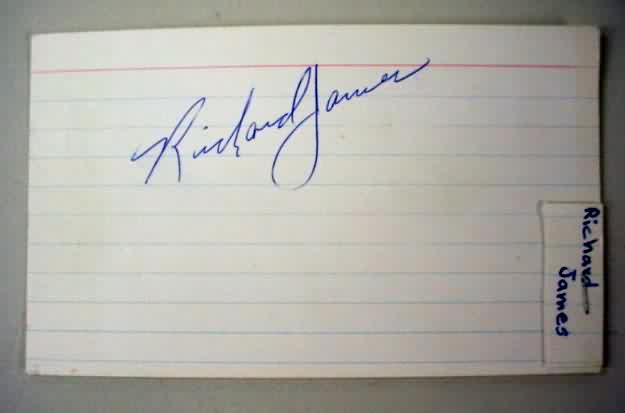 Richard James
Richard
James